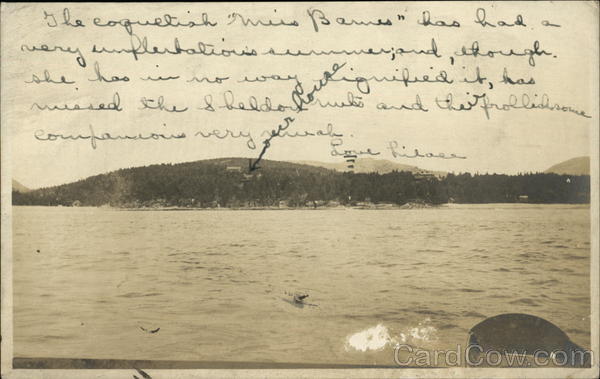 The coquettish "Miss Barnes" has had a
very unflirtatious summer, and, though
she has in no way signified it, has
missed the Sheldon nuts and their frolicksome
companions very much.
Love
our house
CardCow.com